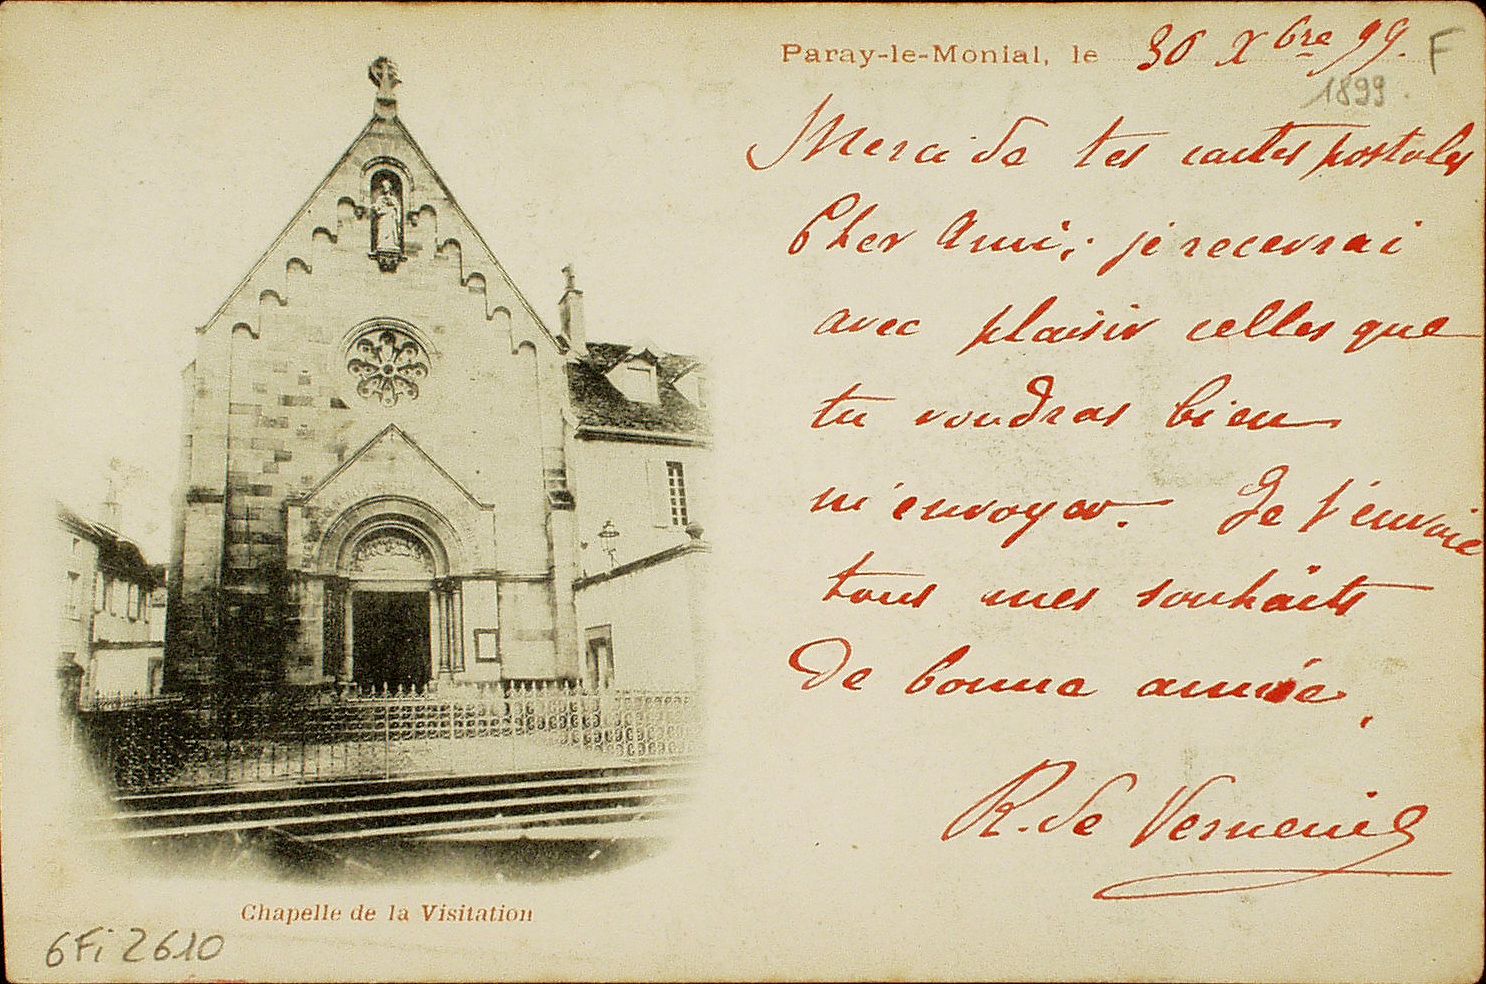 Paray-le-Monial, le 30 Xbre 99. F
1899.
Merci de tes cartes postales
Cher Ami, je recevrai
avec plaisir celles que
tu voudras bien
m'envoyer. Je t'envoie
tous mes souhaits
de bonne année,
R. de Verneuil
Chapelle de la Visitation
6Fi 2610